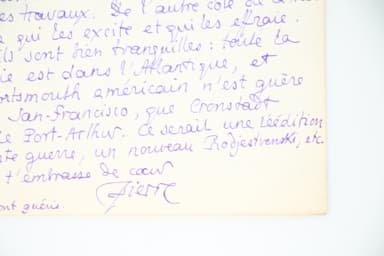 travaux. De l'autre côté de
qui les excite et qui les effraie.
ils sont bien tranquilles : toute la
est dans l'Atlantique, et
ortsmouth américain n'est guère
San-Francisco, que Cronstadt
Port-Arthur. Ce serait une réédition
guerre, un nouveau Rodjestvenski, etc.
t'embrasse de cœur
Pierre
ont guéris.